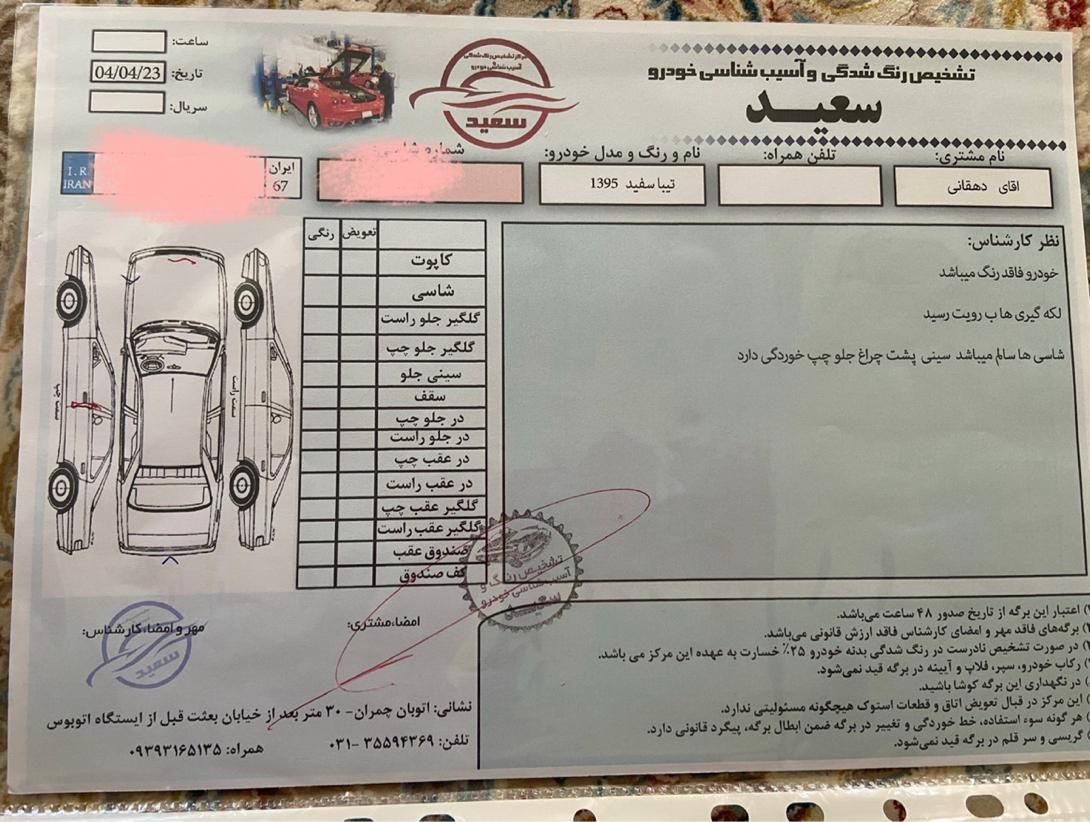 تشخیص رنگ شدگی و آسیب شناسی خودرو
سعید
مرکز تشخیص رنگ شدگی
و
آسیب شناسی خودرو
سعید
ساعت:
تاریخ: 04/04/23
سریال:
نام مشتری:
اقای دهقانی
تلفن همراه:
نام و رنگ و مدل خودرو:
تیبا سفید 1395
شماره
ایران
67
I.R
IRAN
نظر کارشناس:
خودرو فاقد رنگ میباشد
لکه گیری ها ب رویت رسید
شاسی ها سالم میباشد سینی پشت چراغ جلو چپ خوردگی دارد
تعویض رنگی
کاپوت
شاسی
گلگیر جلو راست
گلگیر جلو چپ
سینی جلو
سقف
در جلو چپ
در جلو راست
در عقب چپ
در عقب راست
گلگیر عقب چپ
گلگیر عقب راست
صندوق عقب
کف صندوق
سمت راست
سمت چپ
تشخیص رنگ و
آسیب شناسی خودرو
سعید
اعتبار این برگه از تاریخ صدور ۴۸ ساعت می‌باشد.
برگه‌های فاقد مهر و امضای کارشناس فاقد ارزش قانونی می‌باشد.
در صورت تشخیص نادرست در رنگ شدگی بدنه خودرو ۲۵٪ خسارت به عهده این مرکز می باشد.
رکاب خودرو، سپر، فلاپ و آیینه در برگه قید نمی‌شود.
در نگهداری این برگه کوشا باشید.
این مرکز در قبال تعویض اتاق و قطعات استوک هیچگونه مسئولیتی ندارد.
هر گونه سوء استفاده، خط خوردگی و تغییر در برگه ضمن ابطال برگه، پیگرد قانونی دارد.
گریسی و سر قلم در برگه قید نمی‌شود.
امضاء مشتری:
مهر و امضاء کارشناس:
سعید
نشانی: اتوبان چمران- ۳۰ متر بعد از خیابان بعثت قبل از ایستگاه اتوبوس
تلفن: ۳۵۵۹۴۳۶۹ -۰۳۱ همراه: ۰۹۳۹۳۱۶۵۱۳۵